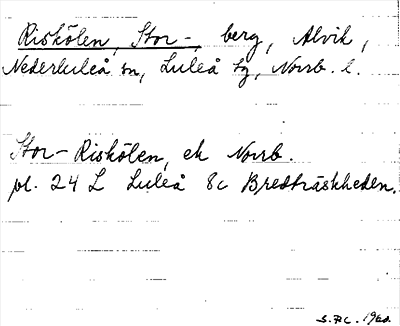 Riskölen, Stor-, berg, Alvik,
Nederluleå sn, Luleå tg, Norrb. l.
Stor-Riskölen, ek Norrb.
pl. 24 L Luleå 8c Bredträskheden.
1960.